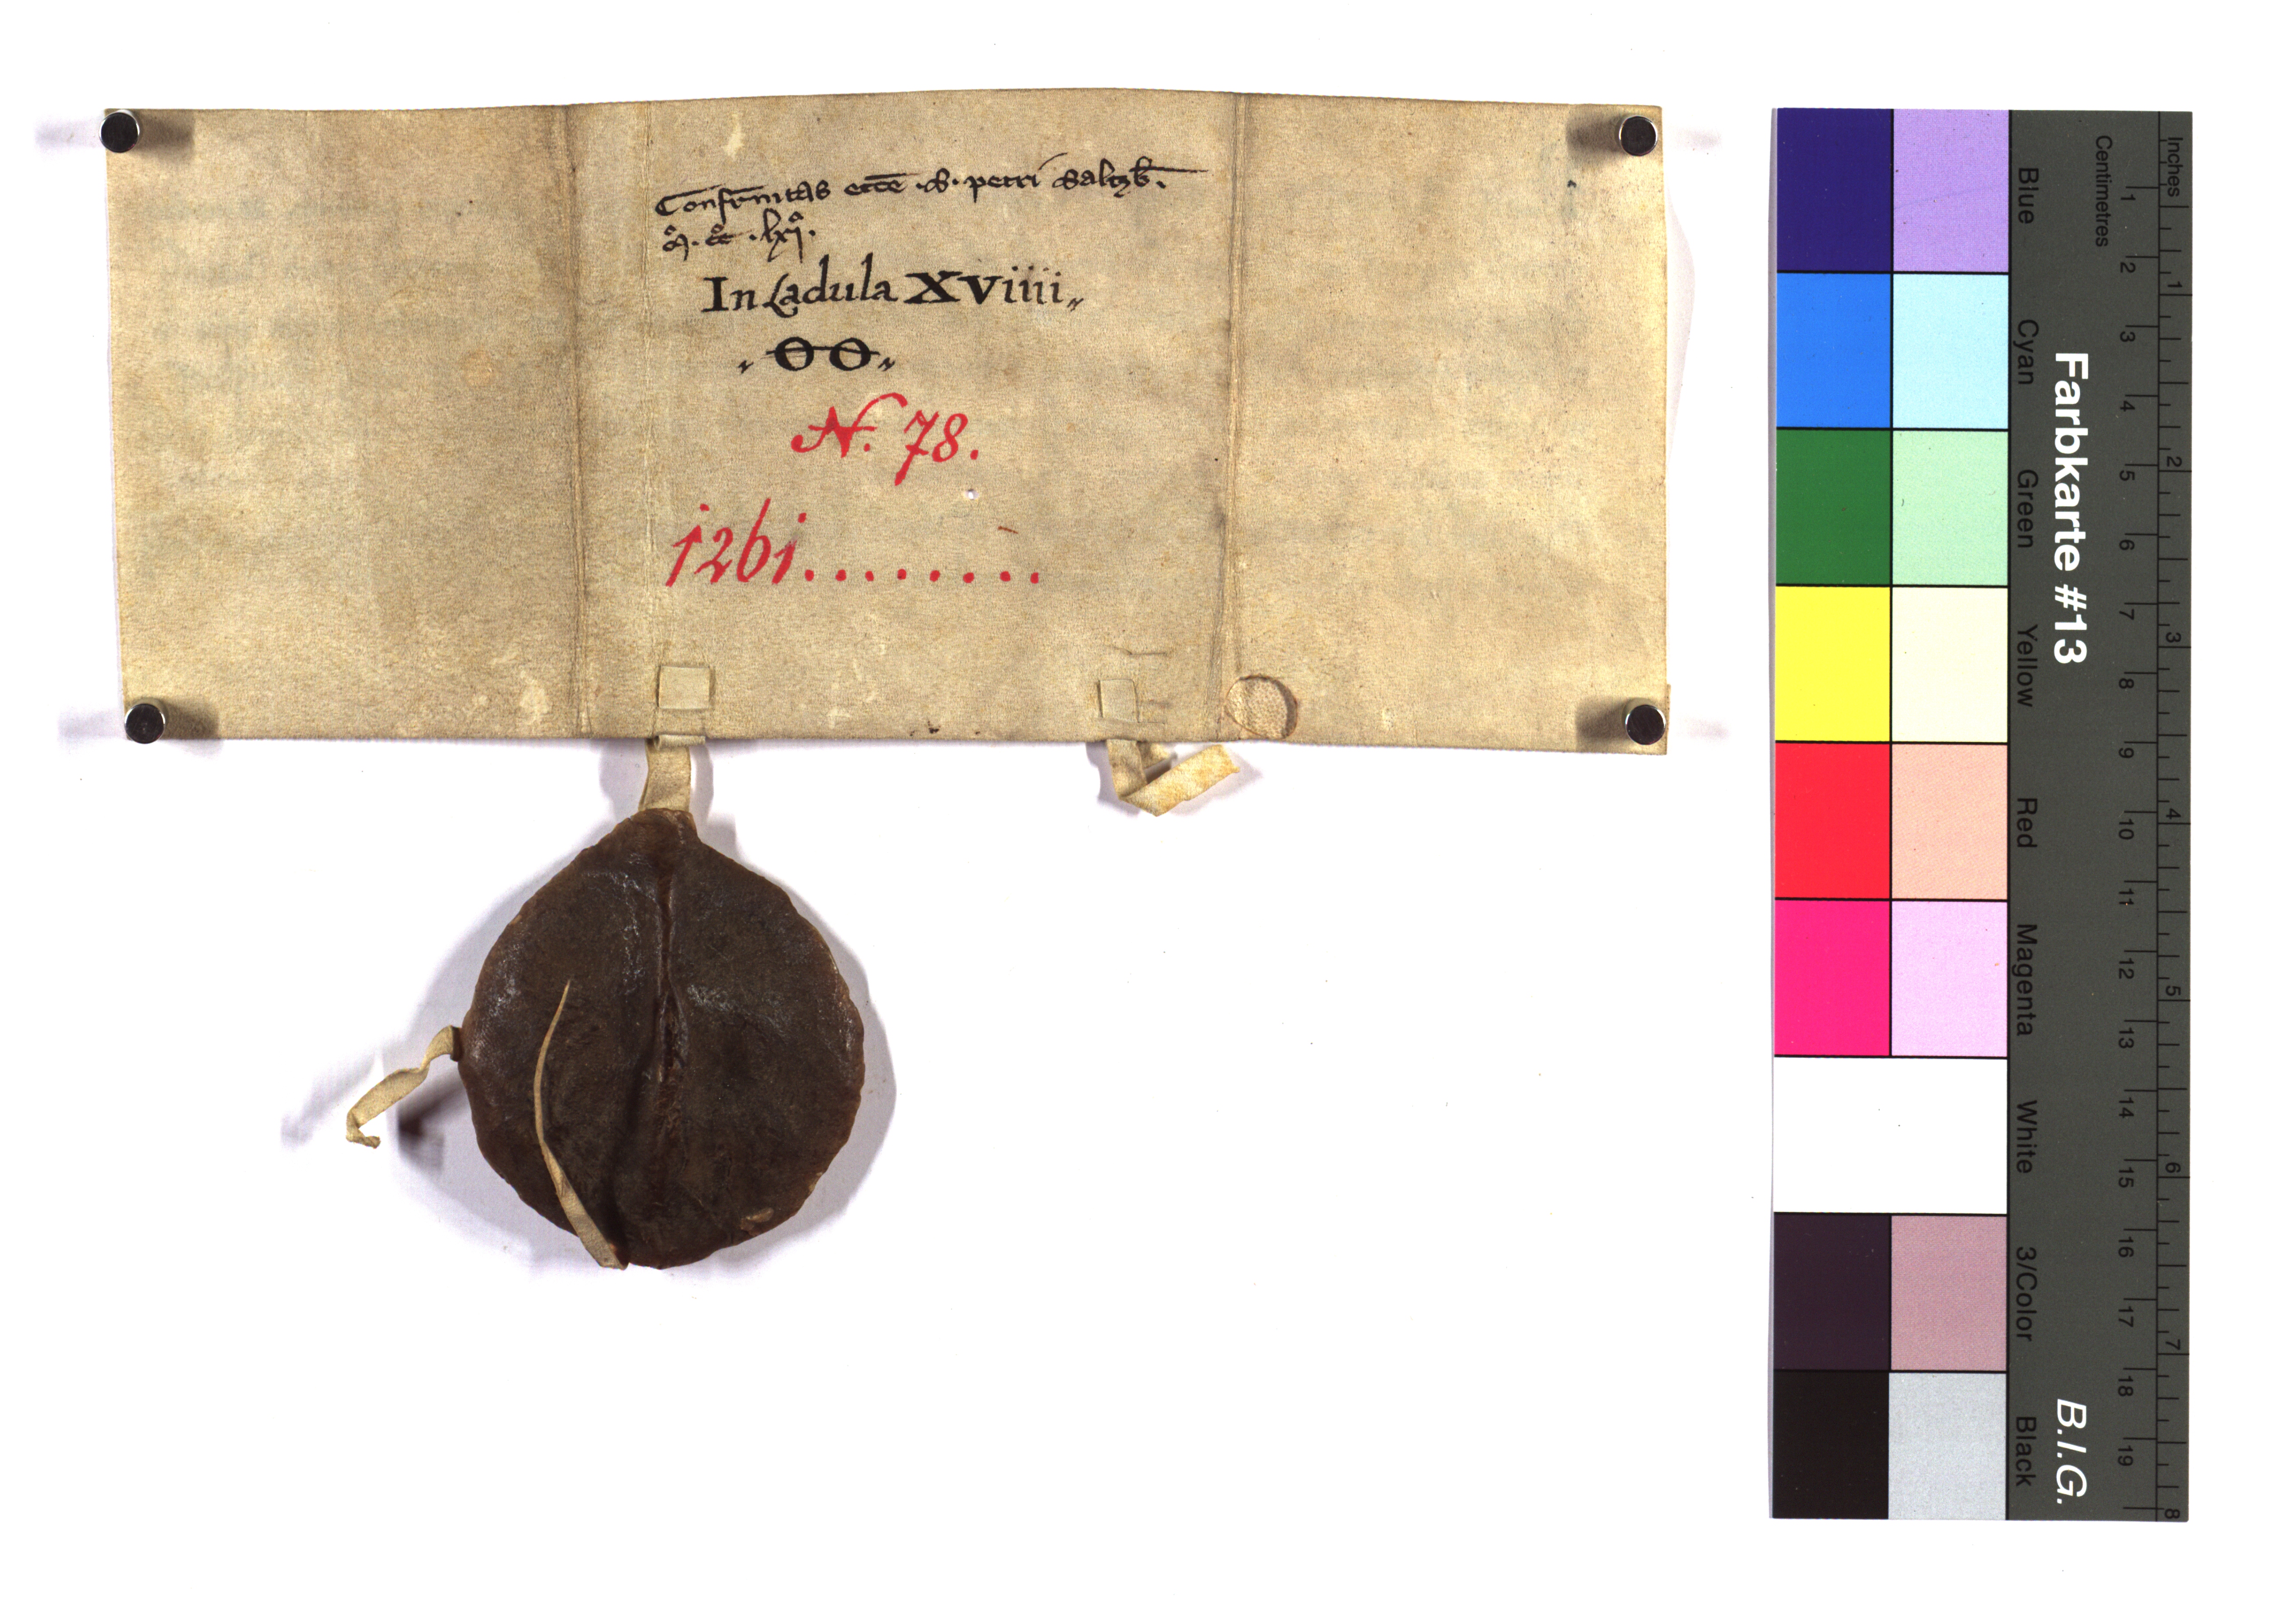 Confr̄nitas eccē .S. petri Saltzb̄.
M̊. c̊c̊ .lxi̊.
In Ladula XViiii„
„ OO „
N. 78.
1261........
Inches
Centimetres
1 2 3 4 5 6 7 8
1 2 3 4 5 6 7 8 9 10 11 12 13 14 15 16 17 18 19
Farbkarte #13 B.I.G.
Blue Cyan Green Yellow Red Magenta White 3/Color Black